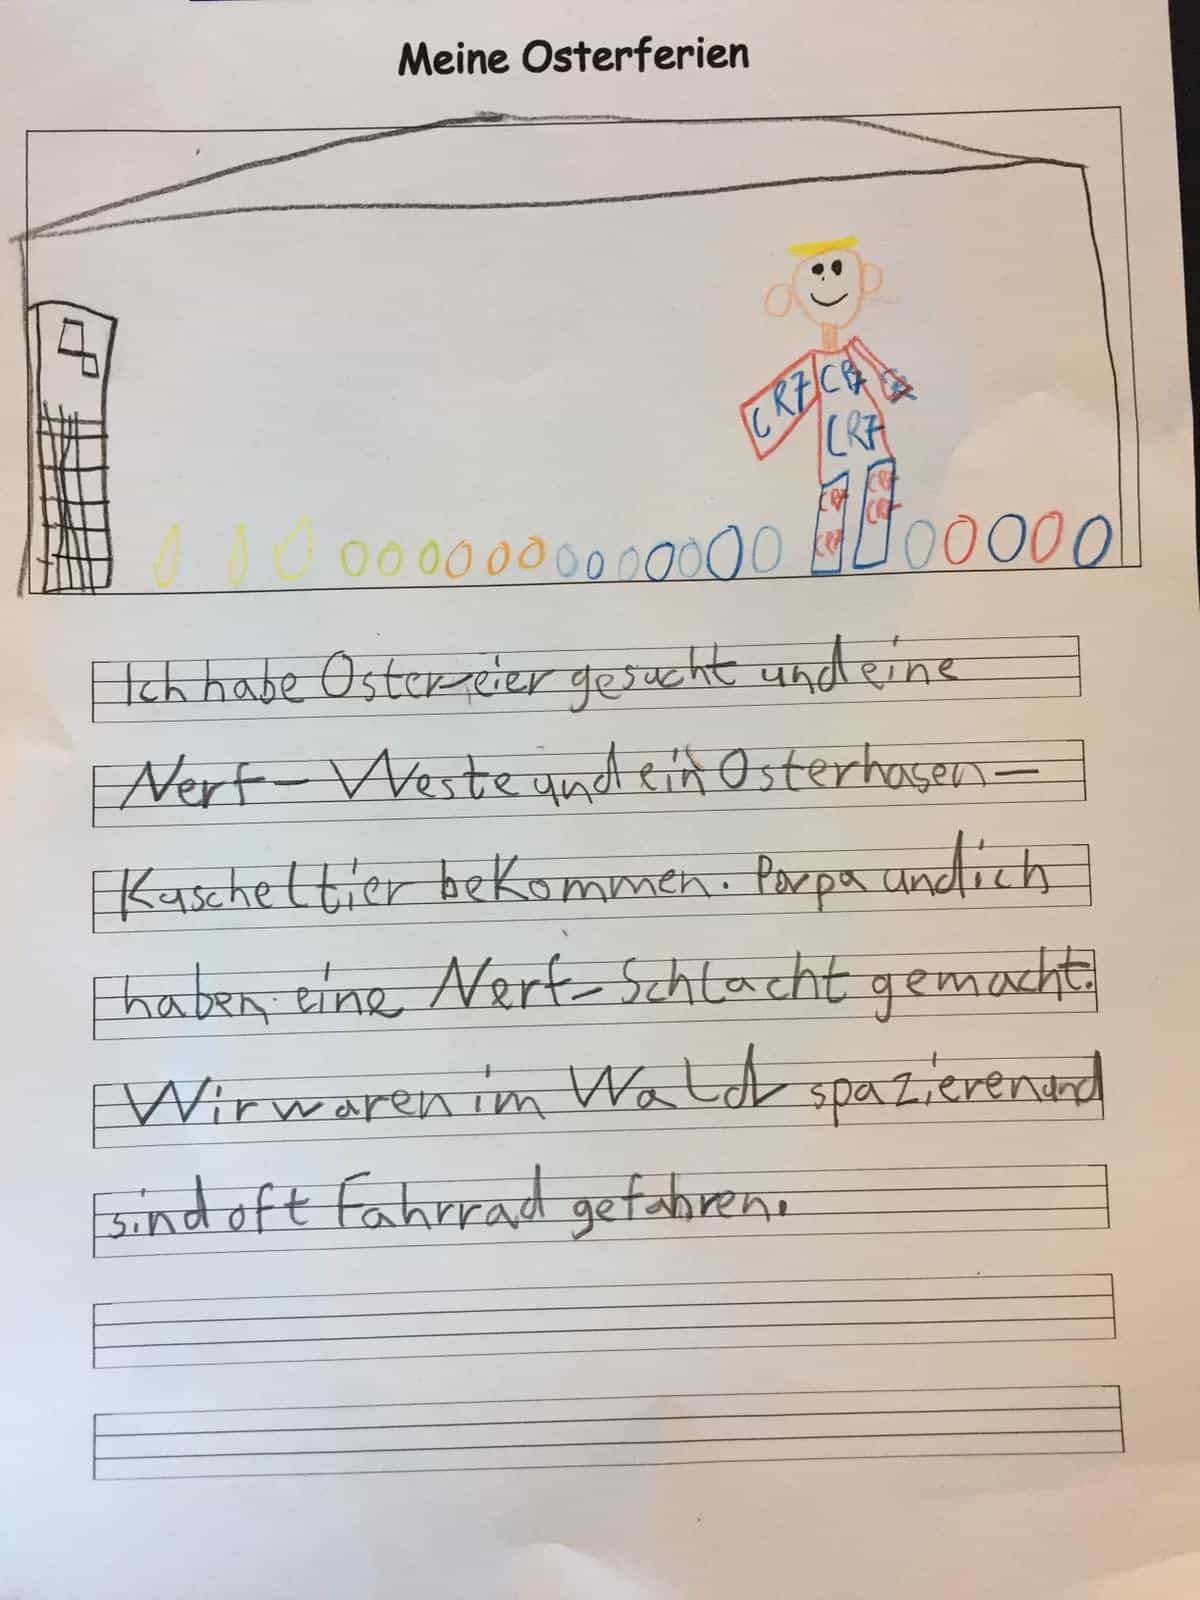 Meine Osterferien
CR7 CR7 CR7
CR7
CR7 CR7
CR7
CR7
Ich habe Ostereier gesucht und eine
Nerf-Weste und ein Osterhasen-
Kuscheltier bekommen. Papa und ich
haben eine Nerf-Schlacht gemacht.
Wir waren im Wald spazieren und
sind oft Fahrrad gefahren.